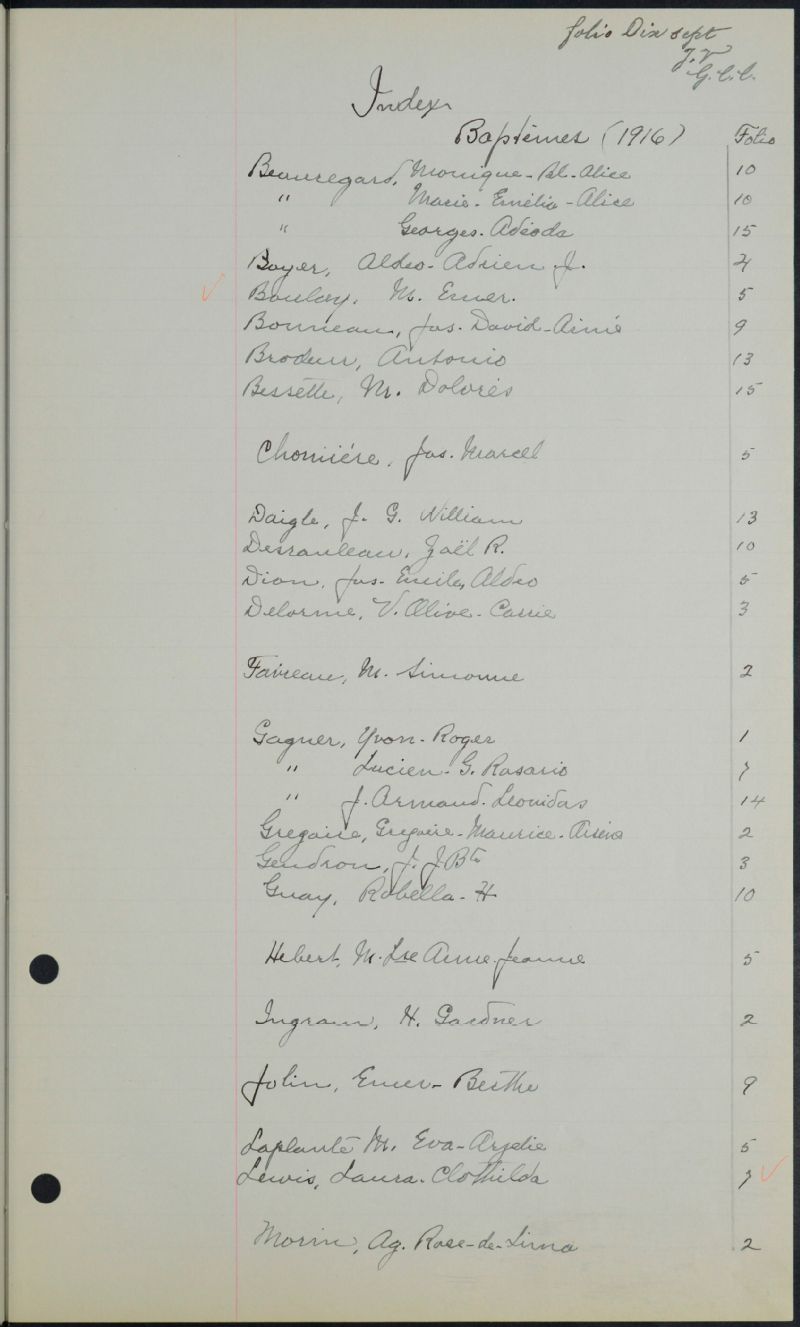 folio Dix sept
J.V
G.C.C.
Index
Baptêmes (1916) Folio
Beauregard, Monique-Bl.-Alice 10
" Marie-Emélia-Alice 10
" Georges-Adéoda 15
Boyer, Aldéo-Adrien J. 4
Boulay, M. Emer. 5
Bonneau, Jos. David-Aimé 9
Brodeur, Antonio 13
Bessette, M. Dolorès 15
Chomière, Jos. Marcel 5
Daigle, J. G. William 13
Desrauleau, Joël R. 10
Dion, Jos. Emile, Aldéo 5
Delorme, V. Olive-Carrie 3
Favreau, M. Simonne 2
Gagner, Yvon-Roger 1
" Lucien-G. Rosario 7
" J. Armand. Leonidas 14
Gregoire, Gregoire-Maurice- 2
Gendron, J. J. Bte 3
Guay, Robella-H 10
Hebert, M. Lse Anne-Jeanne 5
Ingram, H. Gardner 2
Jolin, Emer- Berthe 9
Laplante M. Eva-Arzelie 5
Lewis, Laura-Clothilda 7
Morin, Ag. Rose-de-Lima 2